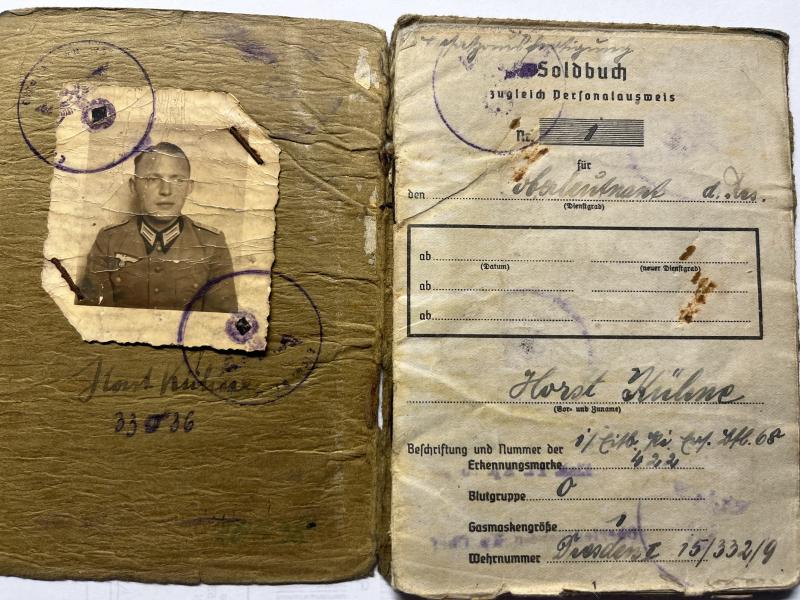 Horst Kühne
33 36
Soldbuch
zugleich Personalausweis
Nr. 1
für
den Oberleutnant d. Res.
(Dienstgrad)
ab
(Datum) (neuer Dienstgrad)
ab
ab
Horst Kühne
(Vor- und Zuname)
Beschriftung und Nummer der
Erkennungsmarke 422
Blutgruppe O
Gasmaskengröße 1
Wehrnummer Dresden I 15/332/9